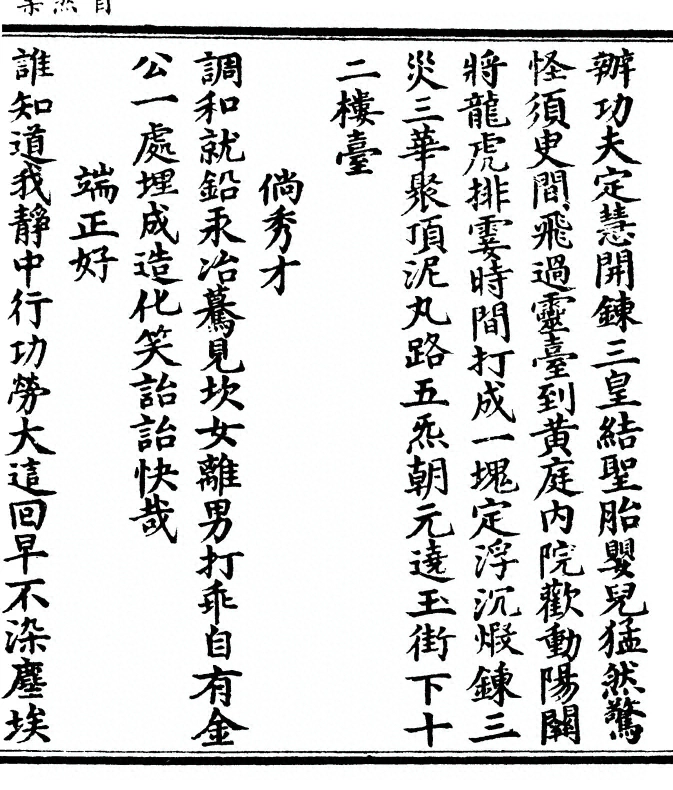 辦功夫定慧開鍊三皇結聖胎嬰兒猛然驚
怪須臾間飛過靈臺到黃庭內院歡動陽關
將龍虎排霎時間打成一塊定浮沉煅鍊三
災三華聚頂泥丸路五炁朝元遶玉街下十
二樓臺
倘秀才
調和就鉛汞冶驀見坎女離男打乖自有金
公一處埋成造化笑詒詒快哉
端正好
誰知道我靜中行功勞大這回早不染塵埃